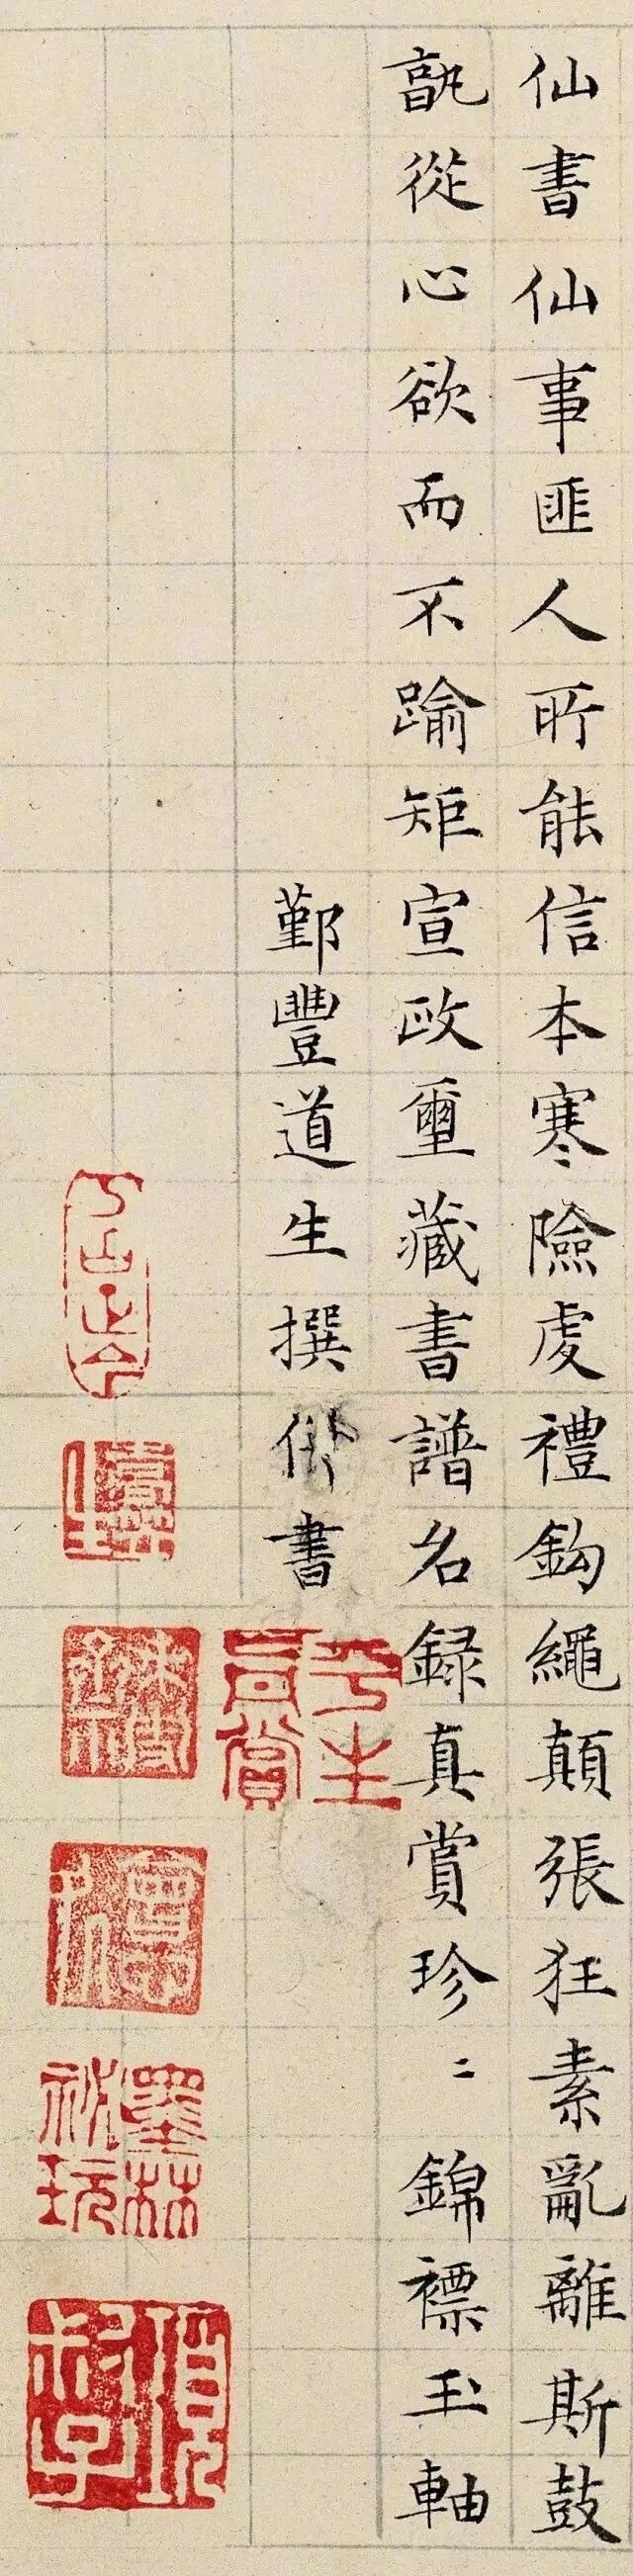 仙書仙事匪人所能信本寒險虔禮鈎繩顛張狂素亂離斯鼓
孰從心欲而不踰矩宣政璽藏書譜名録真賞珍〻錦褾玉軸
鄞豐道生撰併書
平生真賞
墨林祕玩
項叔子